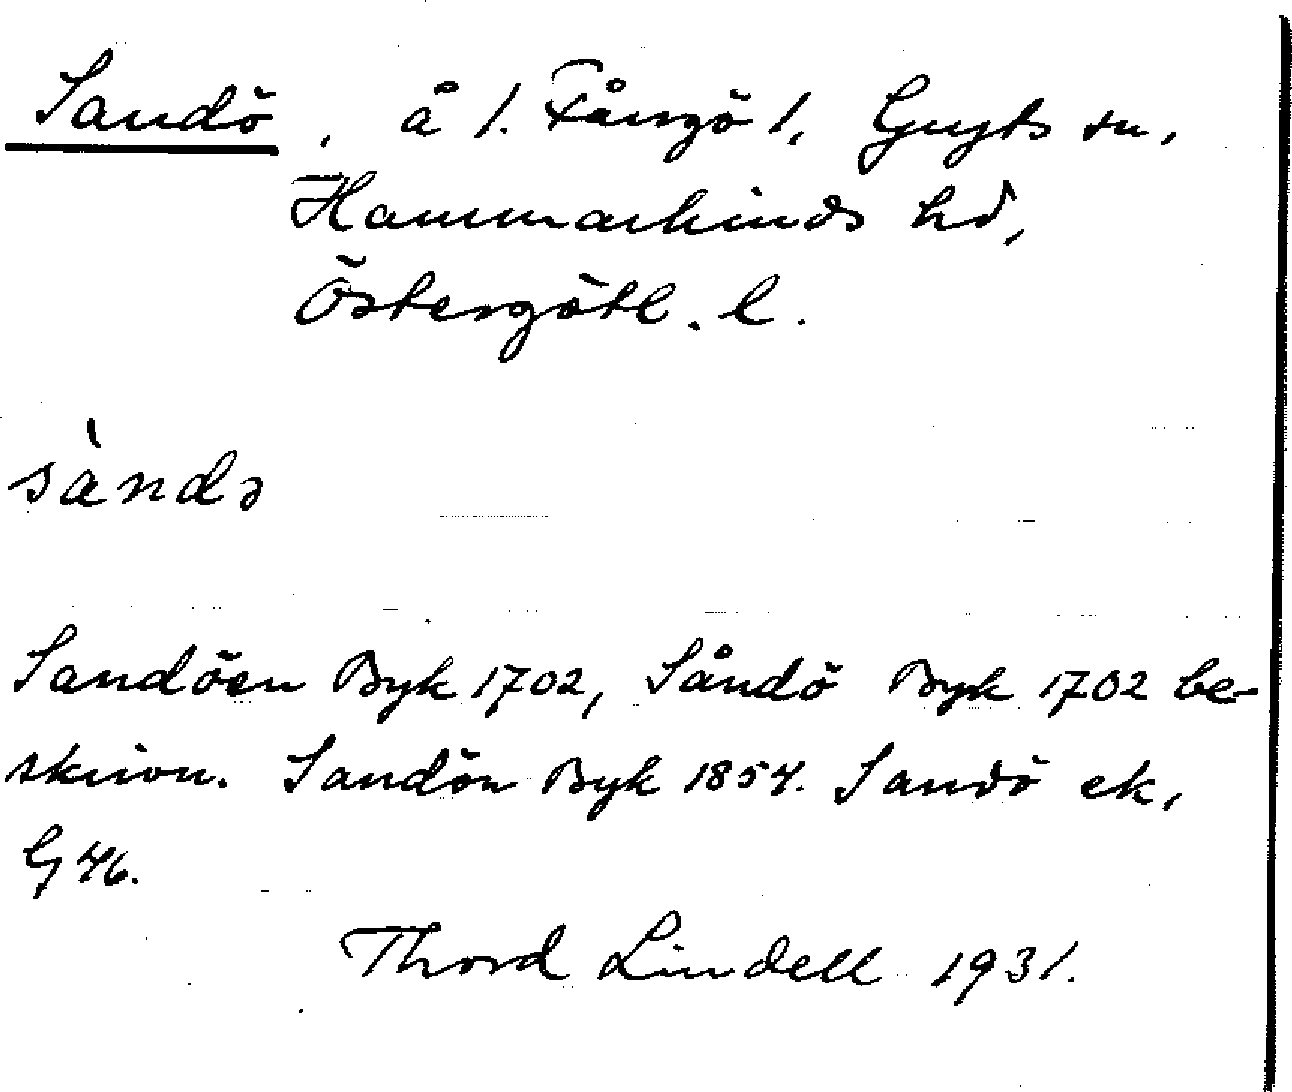 Sandö, å 1. Fångö 1, Gryts sn,
Hammarkinds hd,
Östergötl. l.
sàndə
Sandöen Byk 1702, Såndö Byk 1702 be-
skrivn. Sandön Byk 1854. Sandö ek,
G 46.
Thord Lindell 1931.